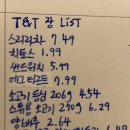 T&T 장 LIST
스리라차 7.49
치토스 1.99
샌드위치 5.99
에그타르트 7.99
소고기 등심 206g 4.54
스튜용 소고기 290g 6.29
양배추 2.64